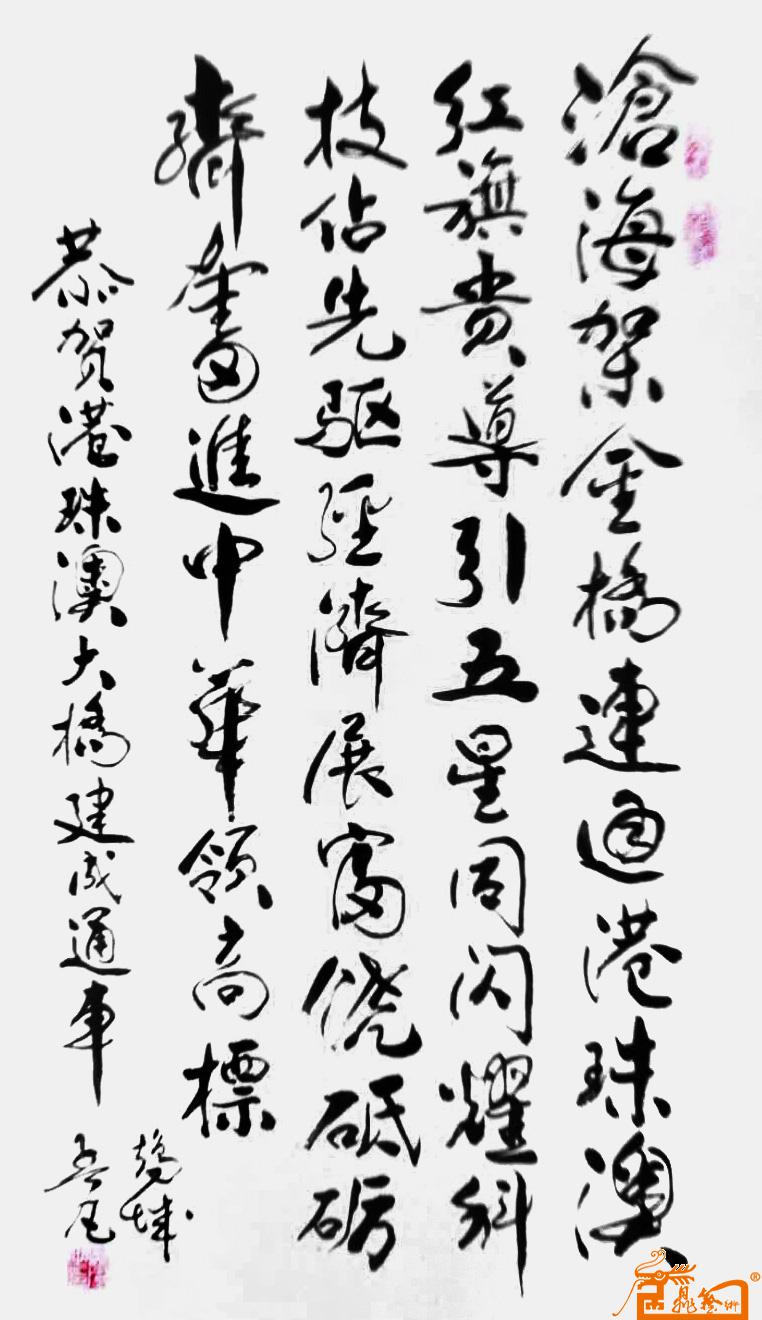 滄海架金橋連通港珠澳
红旗贵導引五星同闪耀科
技佔先驱經濟展富饶砥砺
齊奮進中華領高標
恭贺港珠澳大橋建成通車